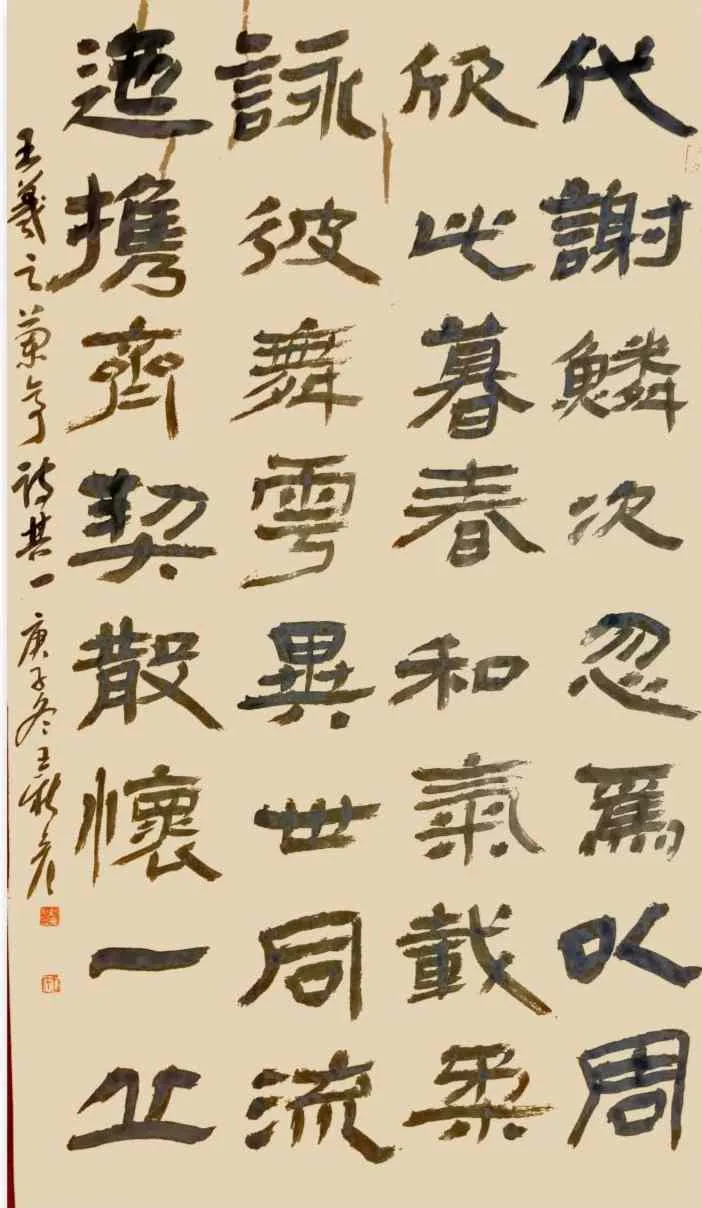 代謝鱗次忽焉以周
欣此暮春和氣載柔
詠彼舞雩異世同流
迺攜齊契散懷一丘
王羲之蘭亭詩其一 庚子冬王秋